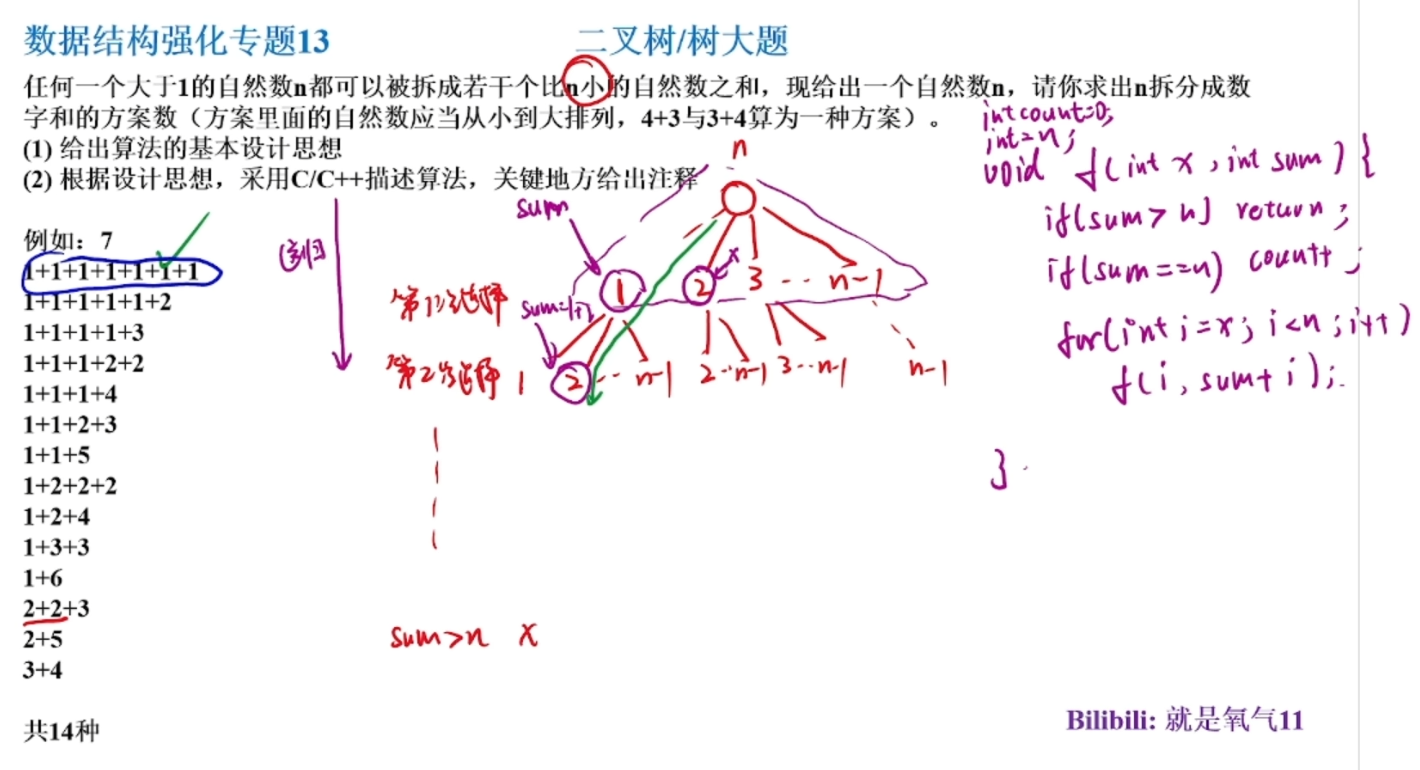 数据结构强化专题13
二叉树/树大题
任何一个大于1的自然数n都可以被拆成若干个比n小的自然数之和，现给出一个自然数n，请你求出n拆分成数
字和的方案数（方案里面的自然数应当从小到大排列，4+3与3+4算为一种方案）。
(1) 给出算法的基本设计思想
(2) 根据设计思想，采用C/C++描述算法，关键地方给出注释
例如：7
1+1+1+1+1+1+1
1+1+1+1+1+2
1+1+1+1+3
1+1+1+2+2
1+1+1+4
1+1+2+3
1+1+5
1+2+2+2
1+2+4
1+3+3
1+6
2+2+3
2+5
3+4
共14种
递归
n
sum
x
第1次选择
1 2 3 ... n-1
sum=1+2
第2次选择
1 2 ... n-1 2 ... n-1 3 ... n-1 n-1
sum>n x
int count=0;
int=n;
void f(int x, int sum) {
if(sum>n) return;
if(sum==n) count++;
for(int i=x; i<n; i++)
f(i, sum+i);
}
Bilibili: 就是氧气11